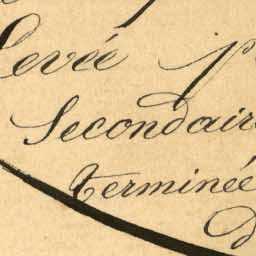 Levée p
Secondair
terminée
d